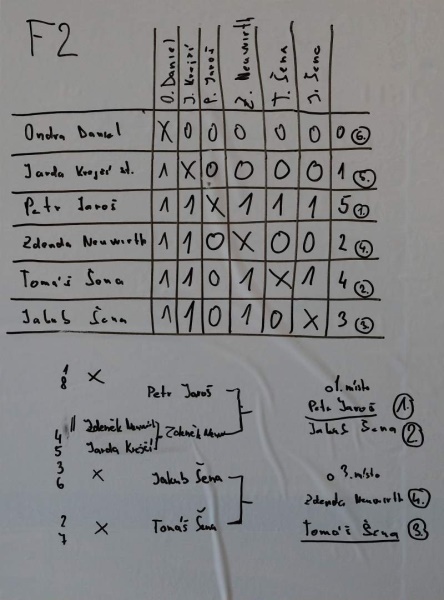 F2
O. Daniel J. Krejčí P. Jaroš Z. Neuwirth T. Šena J. Šena
Ondra Daniel X 0 0 0 0 0 0 6.
Jarda Krejčí st. 1 X 0 0 0 0 1 5.
Petr Jaroš 1 1 X 1 1 1 5 1.
Zdenda Neuwirth 1 1 0 X 0 0 2 4.
Tomáš Šena 1 1 0 1 X 1 4 2.
Jakub Šena 1 1 0 1 0 X 3 3.
1
8 X
Petr Jaroš
4 Zdeněk Neuwirth
5 Jarda Krejčí
Zdeněk Neuw
3
6 X Jakub Šena
2
7 X Tomáš Šena
o 1. místo
Petr Jaroš 1.
Jakub Šena 2
o 3. místo
Zdenda Neuwirth 4.
Tomáš Šena 3.